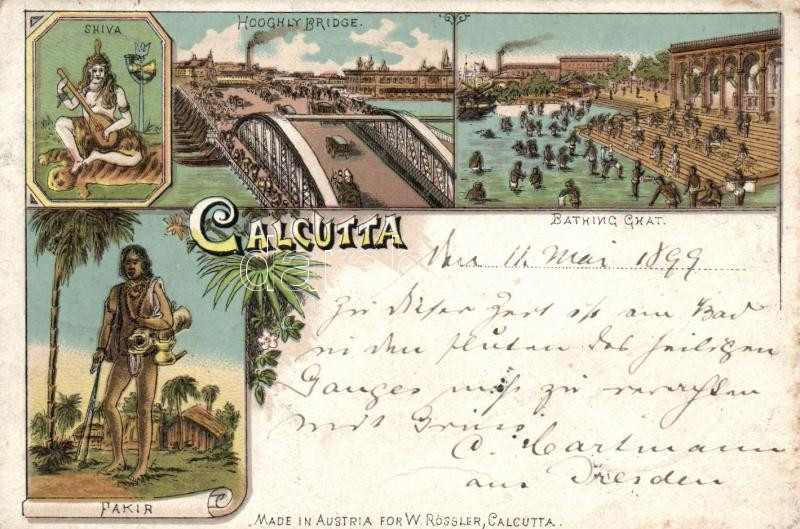 SHIVA
HOOGHLY BRIDGE.
BATHING GHAT.
CALCUTTA
den 11. Mai 1899
Zu dieser Zeit ist ein Bad
in den Fluten des heiligen
Ganges nicht zu verachten
mit Gruss
C. Hartmann
aus Dresden
FAKIR
MADE IN AUSTRIA FOR W. RÖSSLER, CALCUTTA.